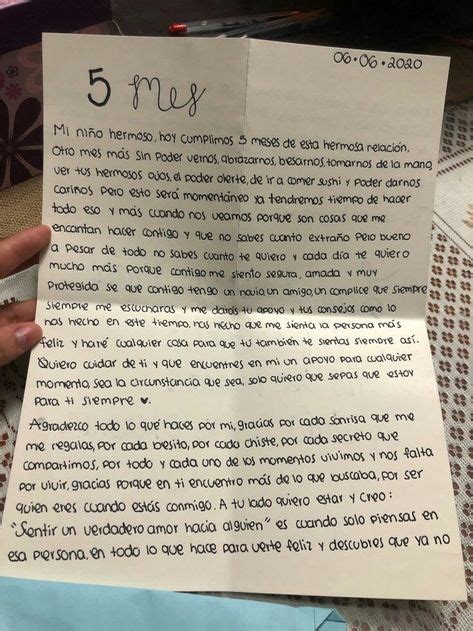 06·06·2020
5 mes
Mi niño hermoso, hoy cumplimos 5 meses de esta hermosa relación,
Otro mes más sin poder vernos, abrazarnos, besarnos, tomarnos de la mano,
ver tus hermosos ojos, el poder olerte, de ir a comer sushi y poder darnos
cariños pero esto será momentáneo ya tendremos tiempo de hacer
todo eso y más cuando nos veamos porque son cosas que me
encantan hacer contigo y que no sabes cuanto extraño pero bueno
a pesar de todo no sabes cuanto te quiero y cada día te quiero
mucho más porque contigo me siento segura, amada y muy
protegida se que contigo tengo un novio, un amigo, un complice que siempre
siempre me escucharas y me darás tu apoyo y tus consejos como lo
has hecho en este tiempo, has hecho que me sienta la persona más
feliz y haré cualquier cosa para que tu también te sientas siempre así.
Quiero cuidar de ti y que encuentres en mi un apoyo para cualquier
momento, sea la circunstancia que sea, solo quiero que sepas que estoy
para ti siempre ♥.
Agradezco todo lo que haces por mi, gracias por cada sonrisa que me
me regalas, por cada besito, por cada chiste, por cada secreto que
compartimos, por todo y cada uno de los momentos vivimos y nos falta
por vivir, gracias porque en ti encuentro más de lo que buscaba, por ser
quien eres cuando estás conmigo. A tu lado quiero estar y creo:
"Sentir un verdadero amor hacia alguien" es cuando solo piensas en
esa persona, en todo lo que hace para verte feliz y descubres que ya no